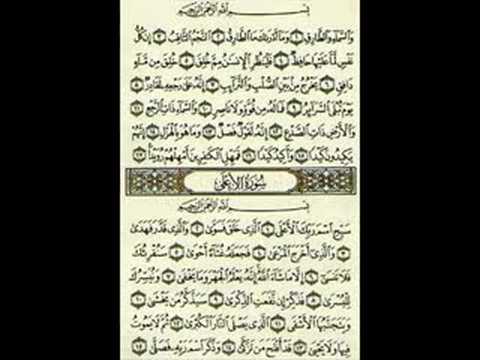 بِسْمِ ٱللَّهِ ٱلرَّحْمَٰنِ ٱلرَّحِيمِ
وَٱلسَّمَآءِ وَٱلطَّارِقِ ١ وَمَآ أَدْرَىٰكَ مَا ٱلطَّارِقُ ٢ ٱلنَّجْمُ ٱلثَّاقِبُ ٣ إِن كُلُّ
نَفْسٍ لَّمَّا عَلَيْهَا حَافِظٌ ٤ فَلْيَنظُرِ ٱلْإِنسَٰنُ مِمَّ خُلِقَ ٥ خُلِقَ مِن مَّآءٍ
دَافِقٍ ٦ يَخْرُجُ مِنۢ بَيْنِ ٱلصُّلْبِ وَٱلتَّرَآئِبِ ٧ إِنَّهُۥ عَلَىٰ رَجْعِهِۦ لَقَادِرٌ ٨
يَوْمَ تُبْلَى ٱلسَّرَآئِرُ ٩ فَمَا لَهُۥ مِن قُوَّةٍ وَلَا نَاصِرٍ ١٠ وَٱلسَّمَآءِ ذَاتِ ٱلرَّجْعِ ١١
وَٱلْأَرْضِ ذَاتِ ٱلصَّدْعِ ١٢ إِنَّهُۥ لَقَوْلٌ فَصْلٌ ١٣ وَمَا هُوَ بِٱلْهَزْلِ ١٤ إِنَّهُمْ
يَكِيدُونَ كَيْدًا ١٥ وَأَكِيدُ كَيْدًا ١٦ فَمَهِّلِ ٱلْكَٰفِرِينَ أَمْهِلْهُمْ رُوَيْدًۢا ١٧
سُورَةُ ٱلْأَعْلَىٰ
بِسْمِ ٱللَّهِ ٱلرَّحْمَٰنِ ٱلرَّحِيمِ
سَبِّحِ ٱسْمَ رَبِّكَ ٱلْأَعْلَى ١ ٱلَّذِى خَلَقَ فَسَوَّىٰ ٢ وَٱلَّذِى قَدَّرَ فَهَدَىٰ
٣ وَٱلَّذِىٓ أَخْرَجَ ٱلْمَرْعَىٰ ٤ فَجَعَلَهُۥ غُثَآءً أَحْوَىٰ ٥ سَنُقْرِئُكَ
فَلَا تَنسَىٰٓ ٦ إِلَّا مَا شَآءَ ٱللَّهُ إِنَّهُۥ يَعْلَمُ ٱلْجَهْرَ وَمَا يَخْفَىٰ ٧ وَنُيَسِّرُكَ
لِلْيُسْرَىٰ ٨ فَذَكِّرْ إِن نَّفَعَتِ ٱلذِّكْرَىٰ ٩ سَيَذَّكَّرُ مَن يَخْشَىٰ ١٠
وَيَتَجَنَّبُهَا ٱلْأَشْقَى ١١ ٱلَّذِى يَصْلَى ٱلنَّارَ ٱلْكُبْرَىٰ ١٢ ثُمَّ لَا يَمُوتُ
فِيهَا وَلَا يَحْيَىٰ ١٣ قَدْ أَفْلَحَ مَن تَزَكَّىٰ ١٤ وَذَكَرَ ٱسْمَ رَبِّهِۦ فَصَلَّىٰ ١٥